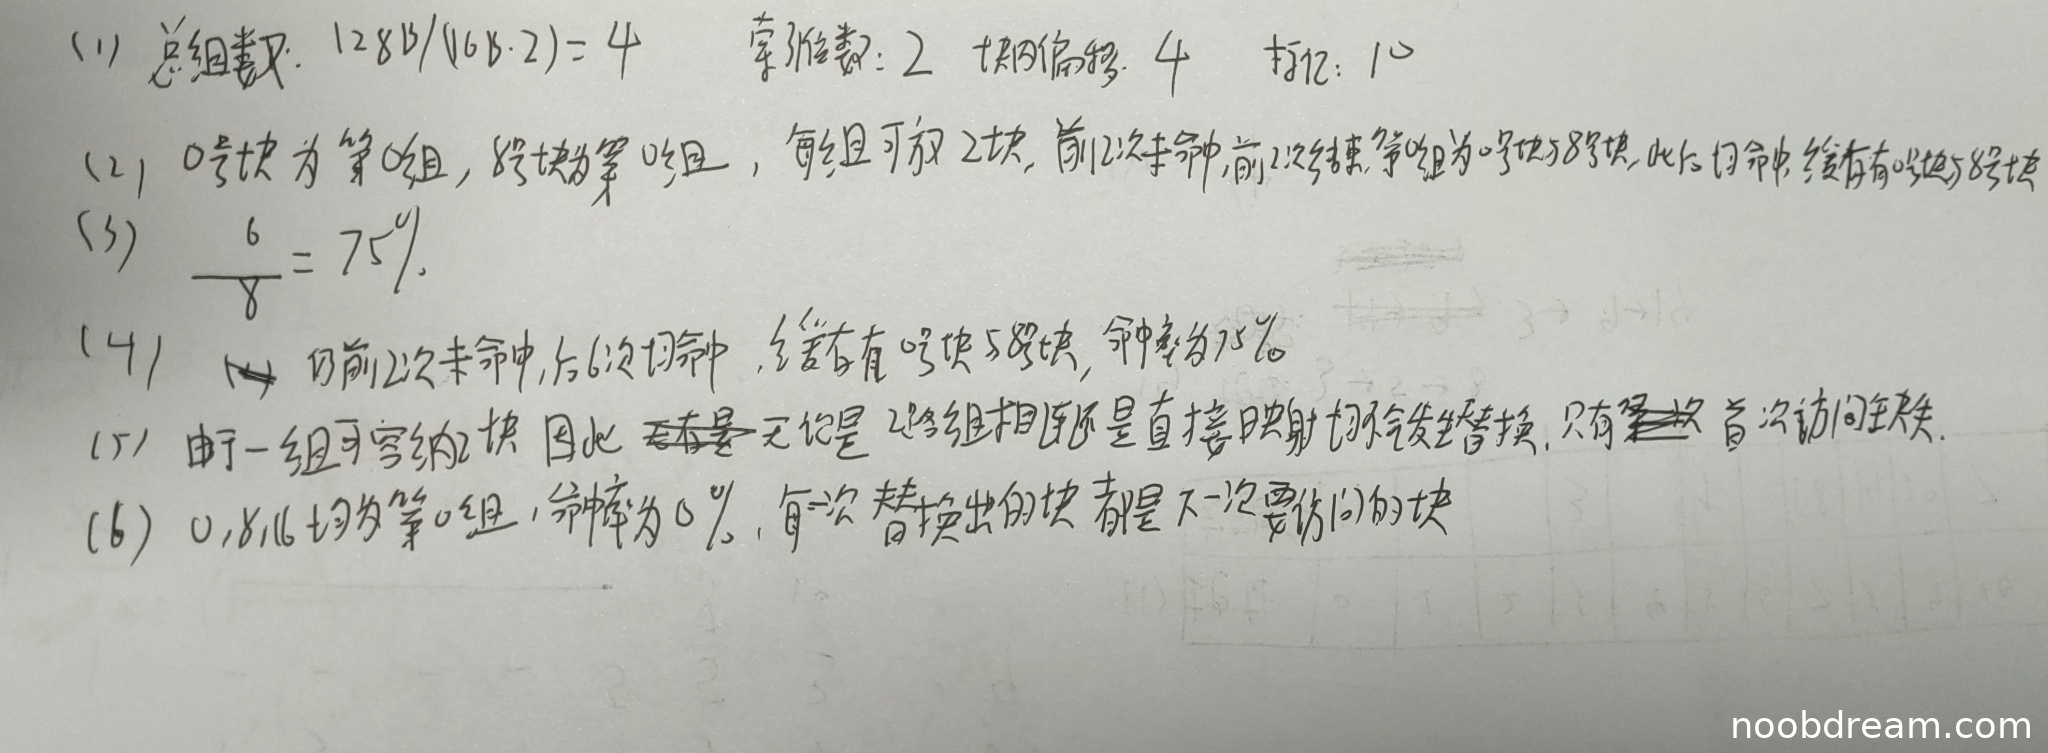 (1) 总组数: 128B/(16B·2)=4 索引位数: 2 块内偏移: 4 标记: 10
(2) 0号块为第0组, 8号块为第0组, 每组可放2块, 前2次未命中, 前2次结束, 第0组为0号块与8号块, 此后均命中, 缓存有0号块与8号块
(3) 6/8 = 75%
(4) 仍前2次未命中, 后6次均命中, 缓存有0号块与8号块, 命中率为75%
(5) 由于一组可容纳2块 因此 无论是2路组相连还是直接映射均不会发生替换, 只有首次访问缺失.
(6) 0,8,16均为第0组, 命中率为0%, 每一次替换出的块都是下一次要访问的块
noobdream.com